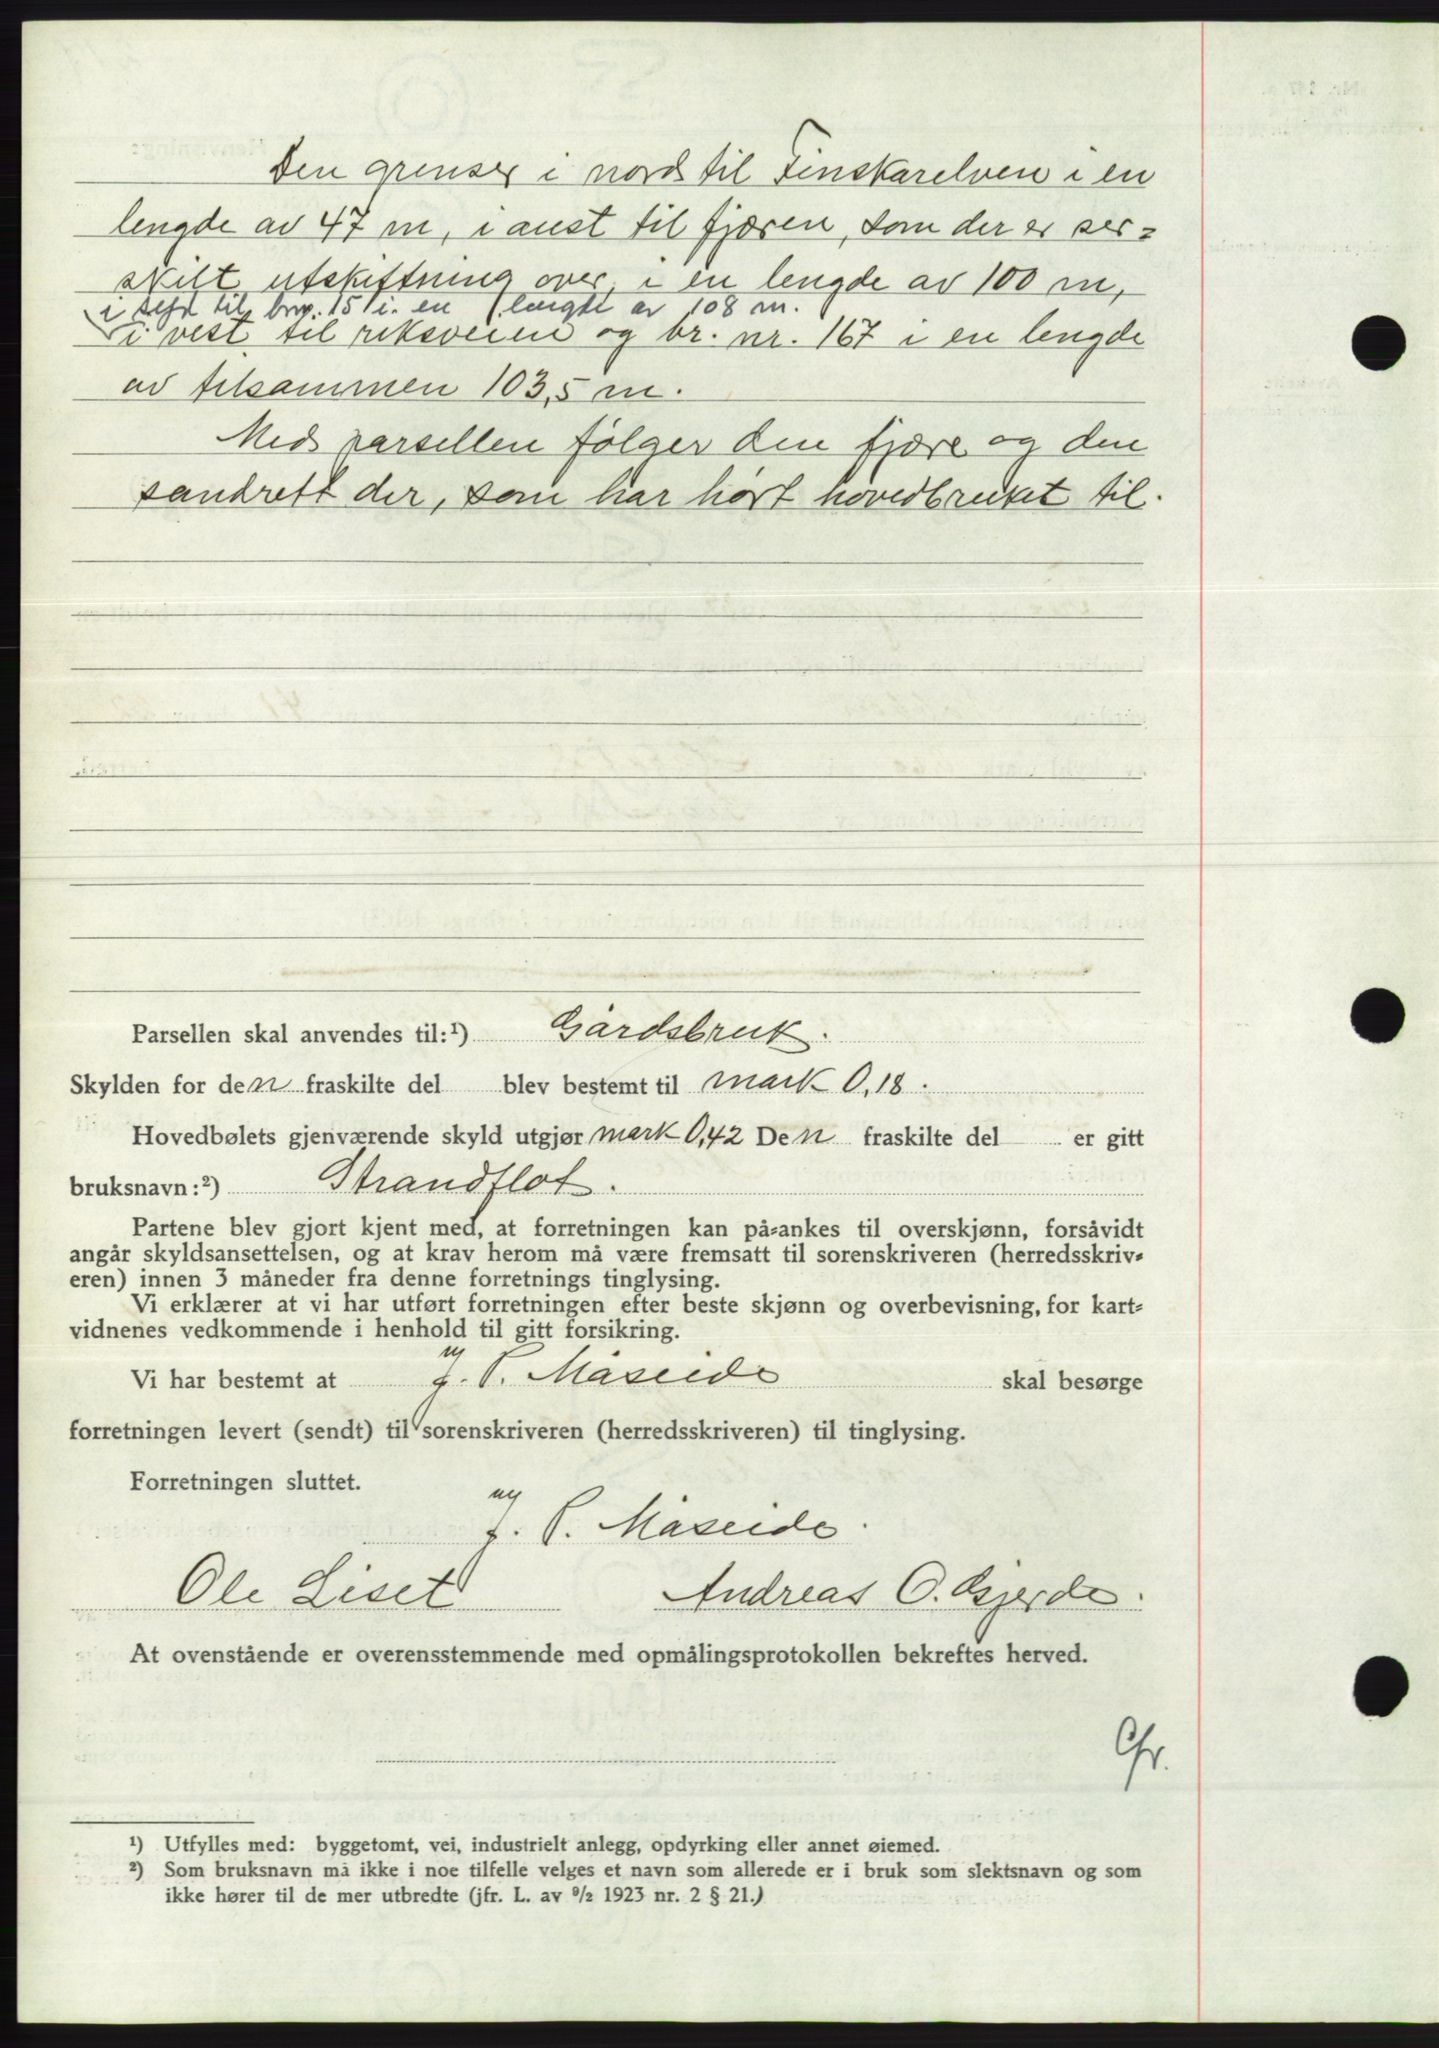 Den grenser i nord til Finskarelven i en
lengde av 47 m, i aust til fjæren, som der er ser-
skilt utskiftning over, i en lengde av 100 m,
i syd til bnr. 15 i en lengde av 108 m.
i vest til riksveien og br. nr. 167 i en lengde
av tilsammen 103,5 m.
Med parsellen følger den fjære og den
tandrett der, som har hørt hovedbruket til.
Parsellen skal anvendes til:¹) Gårdsbruk.
Skylden for den fraskilte del blev bestemt til mark 0,18.
Hovedbølets gjenværende skyld utgjør mark 0,42 Den fraskilte del er gitt
bruksnavn:²) Strandflot.
Partene blev gjort kjent med, at forretningen kan på-ankes til overskjønn, forsåvidt
angår skyldsansettelsen, og at krav herom må være fremsatt til sorenskriveren (herredsskriv-
eren) innen 3 måneder fra denne forretnings tinglysing.
Vi erklærer at vi har utført forretningen efter beste skjønn og overbevisning, for kart-
vidnenes vedkommende i henhold til gitt forsikring.
Vi har bestemt at J. P. Måseide skal besørge
forretningen levert (sendt) til sorenskriveren (herredsskriveren) til tinglysing.
Forretningen sluttet.
J. P. Måseide.
Ole Liset Andreas O. Gjerde.
At ovenstående er overensstemmende med opmålingsprotokollen bekreftes herved.
Cfr.
¹) Utfylles med: byggetomt, vei, industrielt anlegg, opdyrking eller annet øiemed.
²) Som bruksnavn må ikke i noe tilfelle velges et navn som allerede er i bruk som slektsnavn og som
ikke hører til de mer utbredte (jfr. L. av 9/2 1923 nr. 2 § 21.)